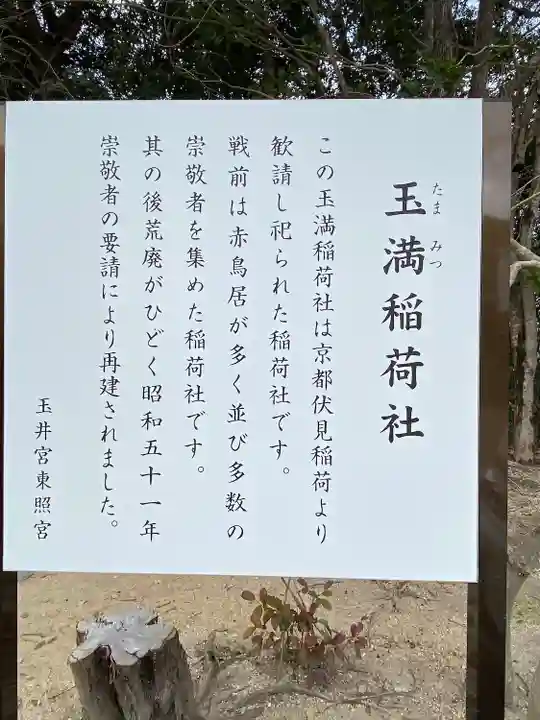 玉満稲荷社
たま みつ
この玉満稲荷社は京都伏見稲荷より
歓請し祀られた稲荷社です。
戦前は赤鳥居が多く並び多数の
崇敬者を集めた稲荷社です。
其の後荒廃がひどく昭和五十一年
崇敬者の要請により再建されました。
玉井宮東照宮